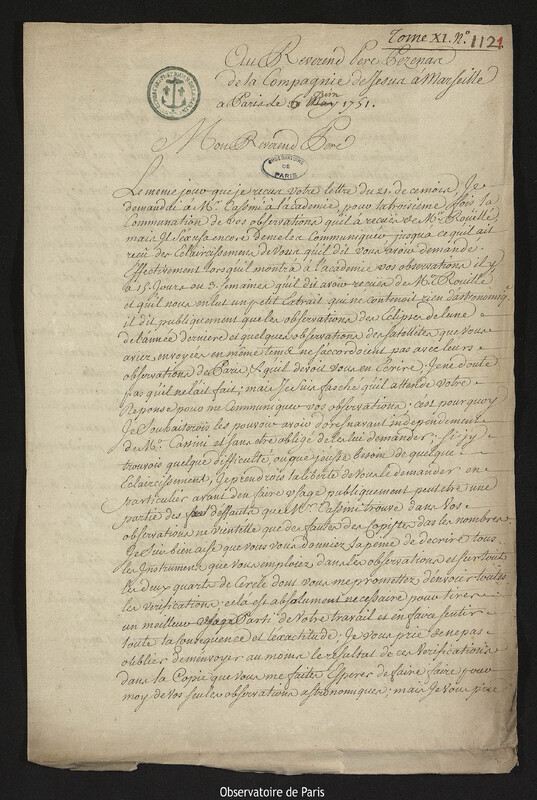 Tome XI. N.º 112 1
Au Reverend Pere Pezenas
de la Compagnie de Jesus a Marseille
a Paris le 6 Juin May 1751.
Mon Reverend Pere
OBSERVATOIRE
DE
PARIS
Le meme jour que je recus votre lettre du 21. de ce mois, Je
demandai a Mr. Cassini à l'academie, pour la troisieme fois la
Communation de vos observations qu'il a recues de Mr. Rouillé
mais Il s'excusa encore de me les Communiquer jusqua ce quil ait
recu des Eclaircissemens de vous quil dit vous avoir demandé.
Effectivement lorsquil montra à l'academie vos observations il y
a 15. Jours ou 3. semaines quil dit avoir recues de Mr. Rouillé
et quil nous en lut un petit Extrait qui ne contenoit rien d'astronomiq.
il dit publiquement que les observations des Eclipses de lune
de l'année derniere et quelques observations des satellites que vous
aviez envoyées en même tems ne s'accordoient pas avec leurs
observations de Paris, & quil devoit vous en Ecrire, Je ne doute
pas quil ne l'ait fait; mais Je suis fasché quil attende votre
Reponse pour me Communiquer vos observations, c'est pourquoy
Je souhaiterois les pouvoir avoir doresnavant independament
de Mr. Cassini et sans etre obligé de les lui demander; si j'y
trouvois quelque difficulté, ou que jeusse besoin de quelque
Eclaircissement, Je prendrois la liberté de vous le demander en
particulier avant d'en faire usage publiquement peut etre une
partie des deffauts que Mr. Cassini trouve dans vos
observations ne vient elle que des fautes des Copistes das les nombres.
Je suis bien aise que vous vous donniez la peine de decrire tous
les Instrumens que vous emploiez dans les observations et sur tout
les deux quarts de Cercle dont vous me promettez d'envoier toutes
les verifications; cela est absolument necessaire pour tirer
un meilleur Parti de votre travail et en faire sentir
toute la consequence et l'exactitude; Je vous prie de ne pas
oublier de m'envoyer au moins le resultat de ces verifications
dans la Copie que vous me faites Esperer de faire faire pour
moy de vos seules observations astronomiques; mais Je vous prie
Observatoire de Paris